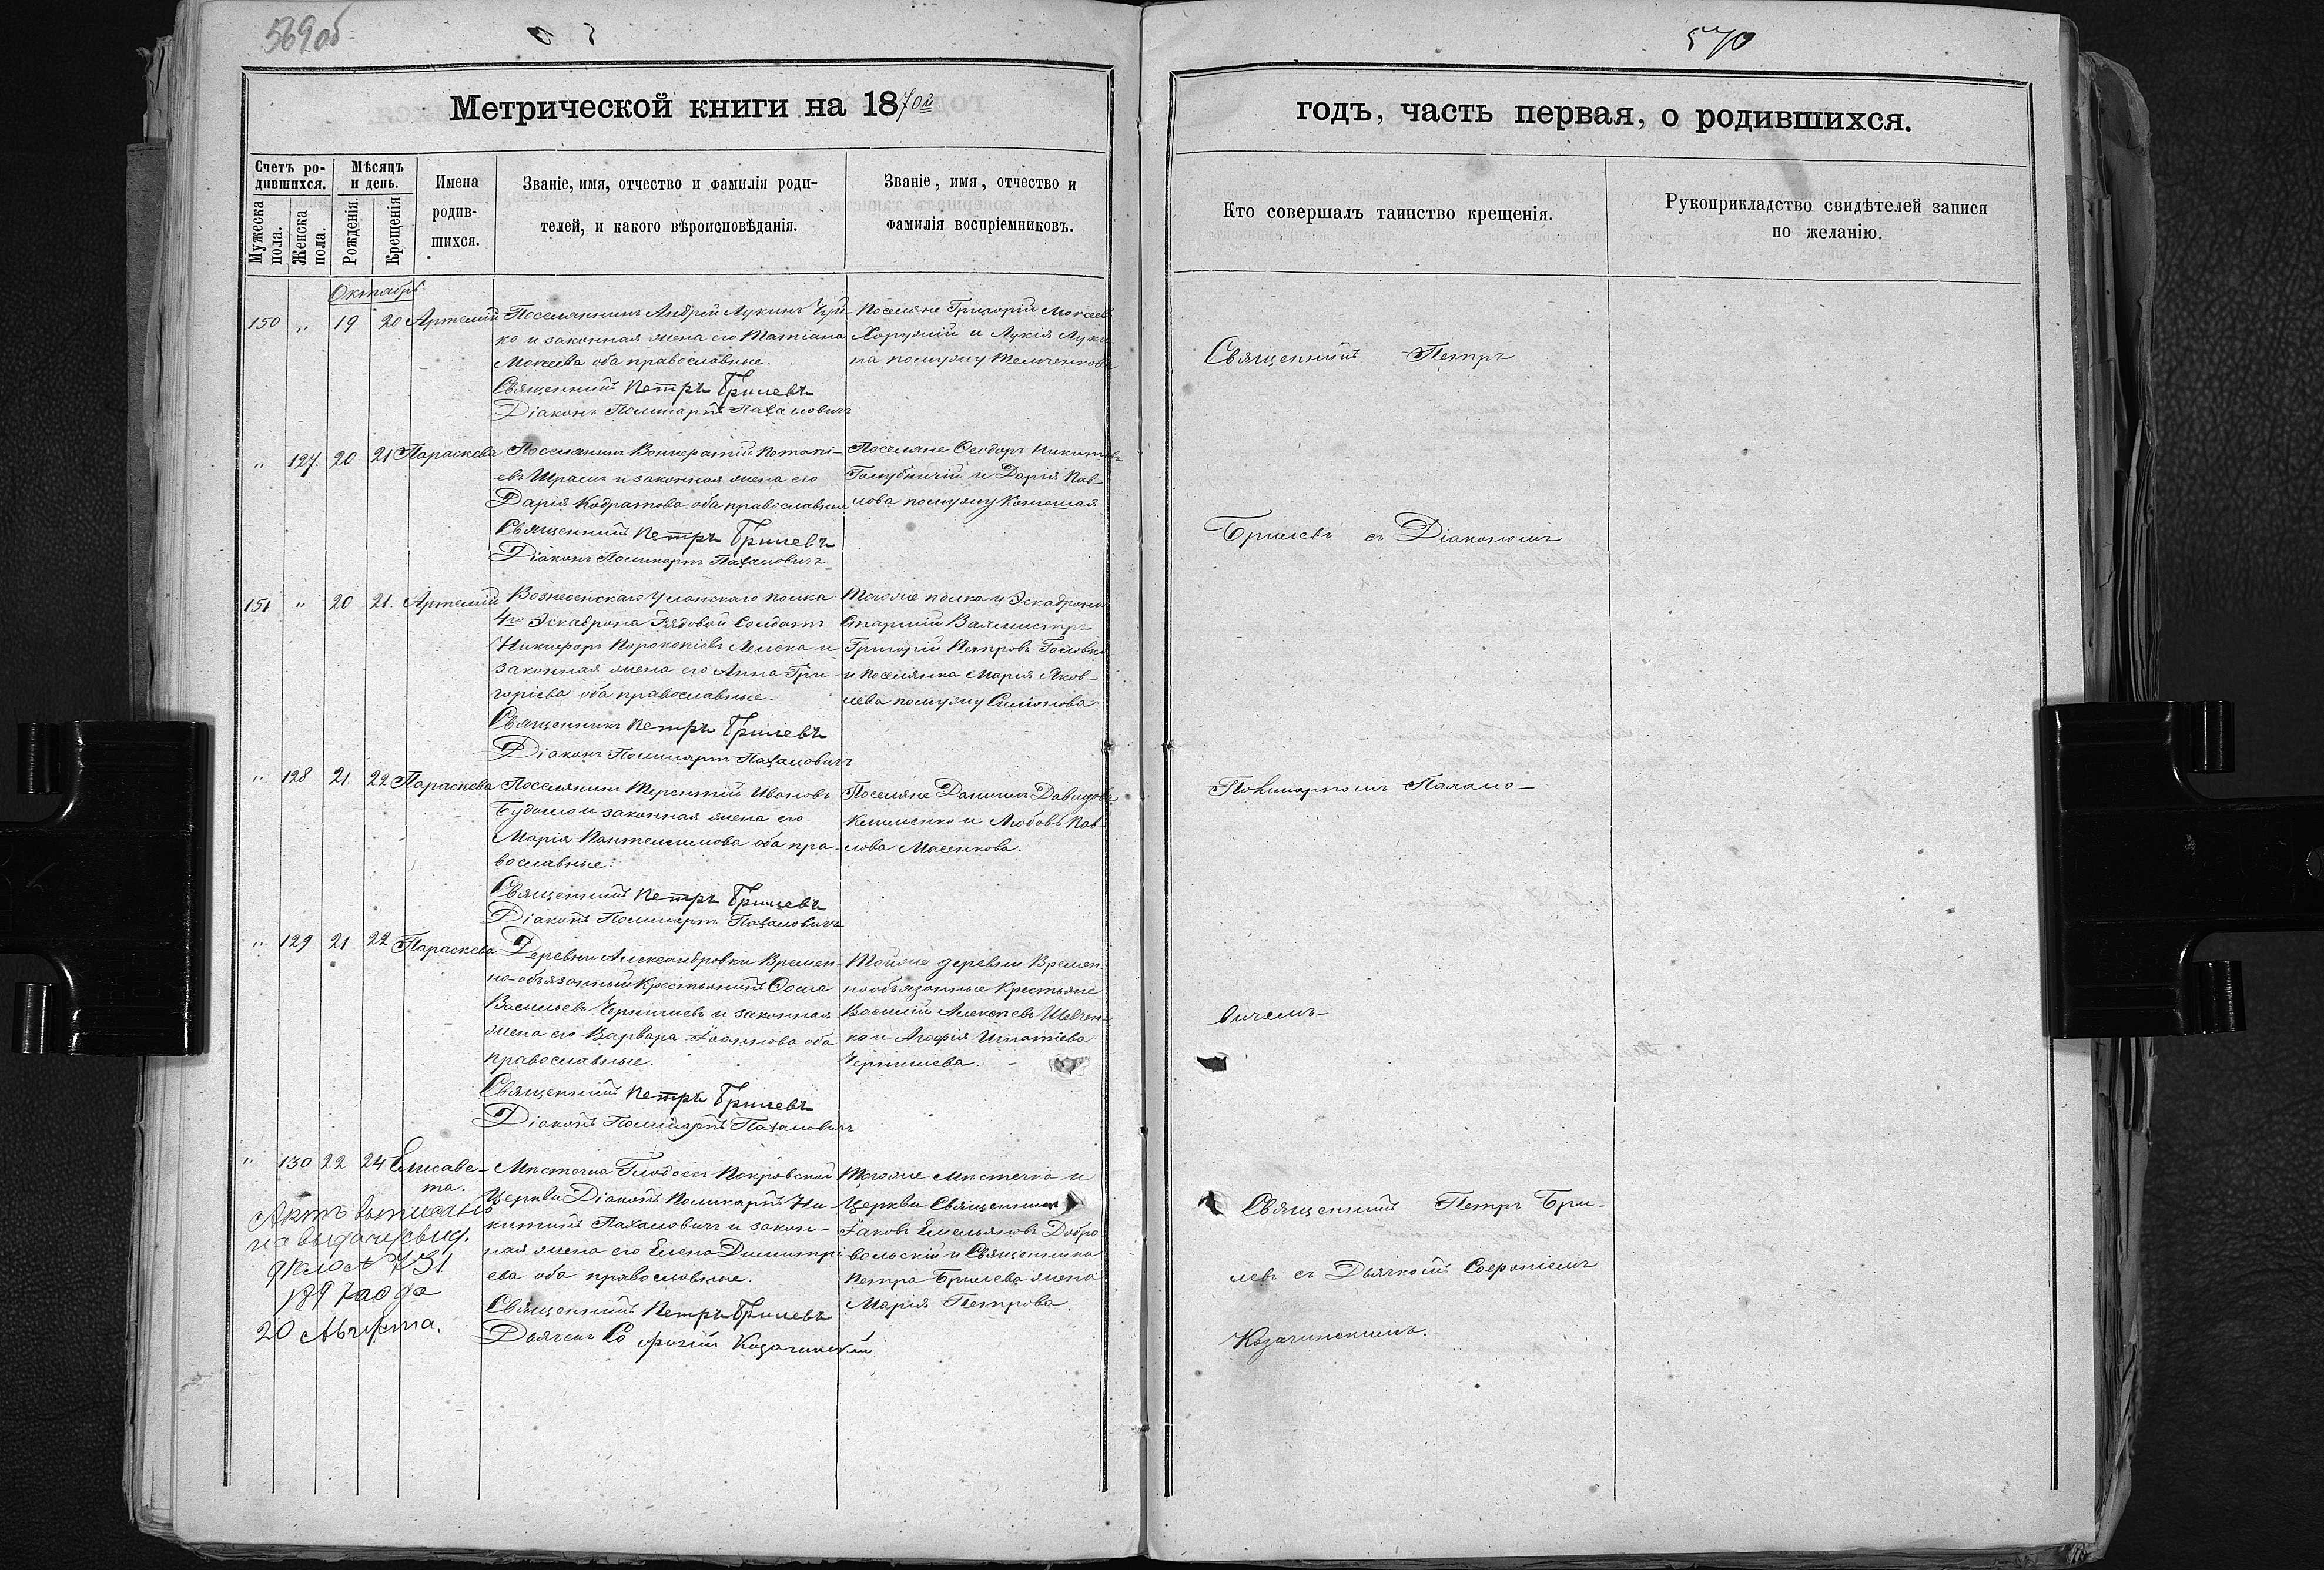 569об
570
Метрической книги на 1870й
годъ, часть первая, о родившихся.
Счетъ родившихся.
Мѣсяцъ и день.
Мужеска пола.
Женска пола.
Рожденія.
Крещенія.
Имена родив-
шихся.
Званіе, имя, отчество и фамилія роди-
телей, и какого вѣроисповѣданія.
Званіе, имя, отчество и
фамилія воспріемниковъ.
Кто совершалъ таинство крещенія.
Рукоприкладство свидѣтелей записи
по желанію.
Октябрь
150 „ 19 20 Артемій
Поселянинъ Андрей Лукинъ Чуй-
ко и законная жена его Татіана
Мокеева оба православные.
Священникъ Петръ Брилевъ
Діаконъ Поликарпъ Пахаловичъ
Поселяне Григорій Мокеевъ
Харужій и Лукія Луки-
на помужу
„ 127. 20 21 Параскева
Поселянинъ Потапі-
евъ и законная жена его
Дарія Кодратова оба православные
Священникъ Петръ Брилевъ
Діаконъ Поликарпъ Пахаловичъ
Поселяне Ѳеодоръ Никитовъ
Голубничій и Дарія Пав-
лова помужу
151 „ 20 21. Артемій
Вознесенскаго Уланскаго полка
4го Эскадрона Рядовой Солдатъ
Никифоръ Порокопіевъ и
законная жена его Анна Гри-
горіева оба православные.
Священникъ Петръ Брилевъ
Діаконъ Поликарпъ Пахаловичъ
Тогоже полка и Эскадрона
Старшій Вахмистръ
Григорій Петровъ Головко
и Поселянка Марія Яков-
лева помужу Симонова.
„ 128 21 22 Параскева
Поселянинъ Терентій Ивановъ
и законная жена его
Марія Пантелимова оба пра-
вославные.
Священникъ Петръ Брилевъ
Діаконъ Поликарпъ Пахаловичъ
Поселяне Даниилъ Давидовъ
Клименко и Любовь Пав-
лова Масенкова.
„ 129 21 22 Параскева
Деревни Александровки Времен-
но-обязанный Крестьянинъ Ѳома
Васильевъ Чернышевъ и законная
жена его Варвара Іоаннова оба
православные.
Священникъ Петръ Брилевъ
Діаконъ Поликарпъ Пахаловичъ
Тойже деревни Времен-
нообязанные Крестьяне
Василій Алексѣевъ Шевчен-
ко и Агафія Игнатіева
Чернышева.
„ 130 22 24 Елисаве-
та.
Мѣстечка Глодосъ Покровской
Церкви Діаконъ Поликарпъ Ни-
китинъ Пахаловичъ и закон-
ная жена его Елена Димитрі-
ева оба православные.
Священникъ Петръ Брилевъ
Дьячекъ Софроній Казачинскій
Тогоже мѣстечка и
Церкви Священникъ
Іаковъ Емельяновъ Добро-
вольскій и Священника
Петра Брилева жена
Марія Петрова.
Актъ выписанъ
на выдачу свид.
№ 731
1897 года
20 Августа.
Священникъ Петръ
Брилевъ съ Діакономъ
Поликарпомъ Пахало-
вичемъ
Священникъ Петръ Бри-
левъ съ Дьячкомъ Софроніемъ
Казачинскимъ.